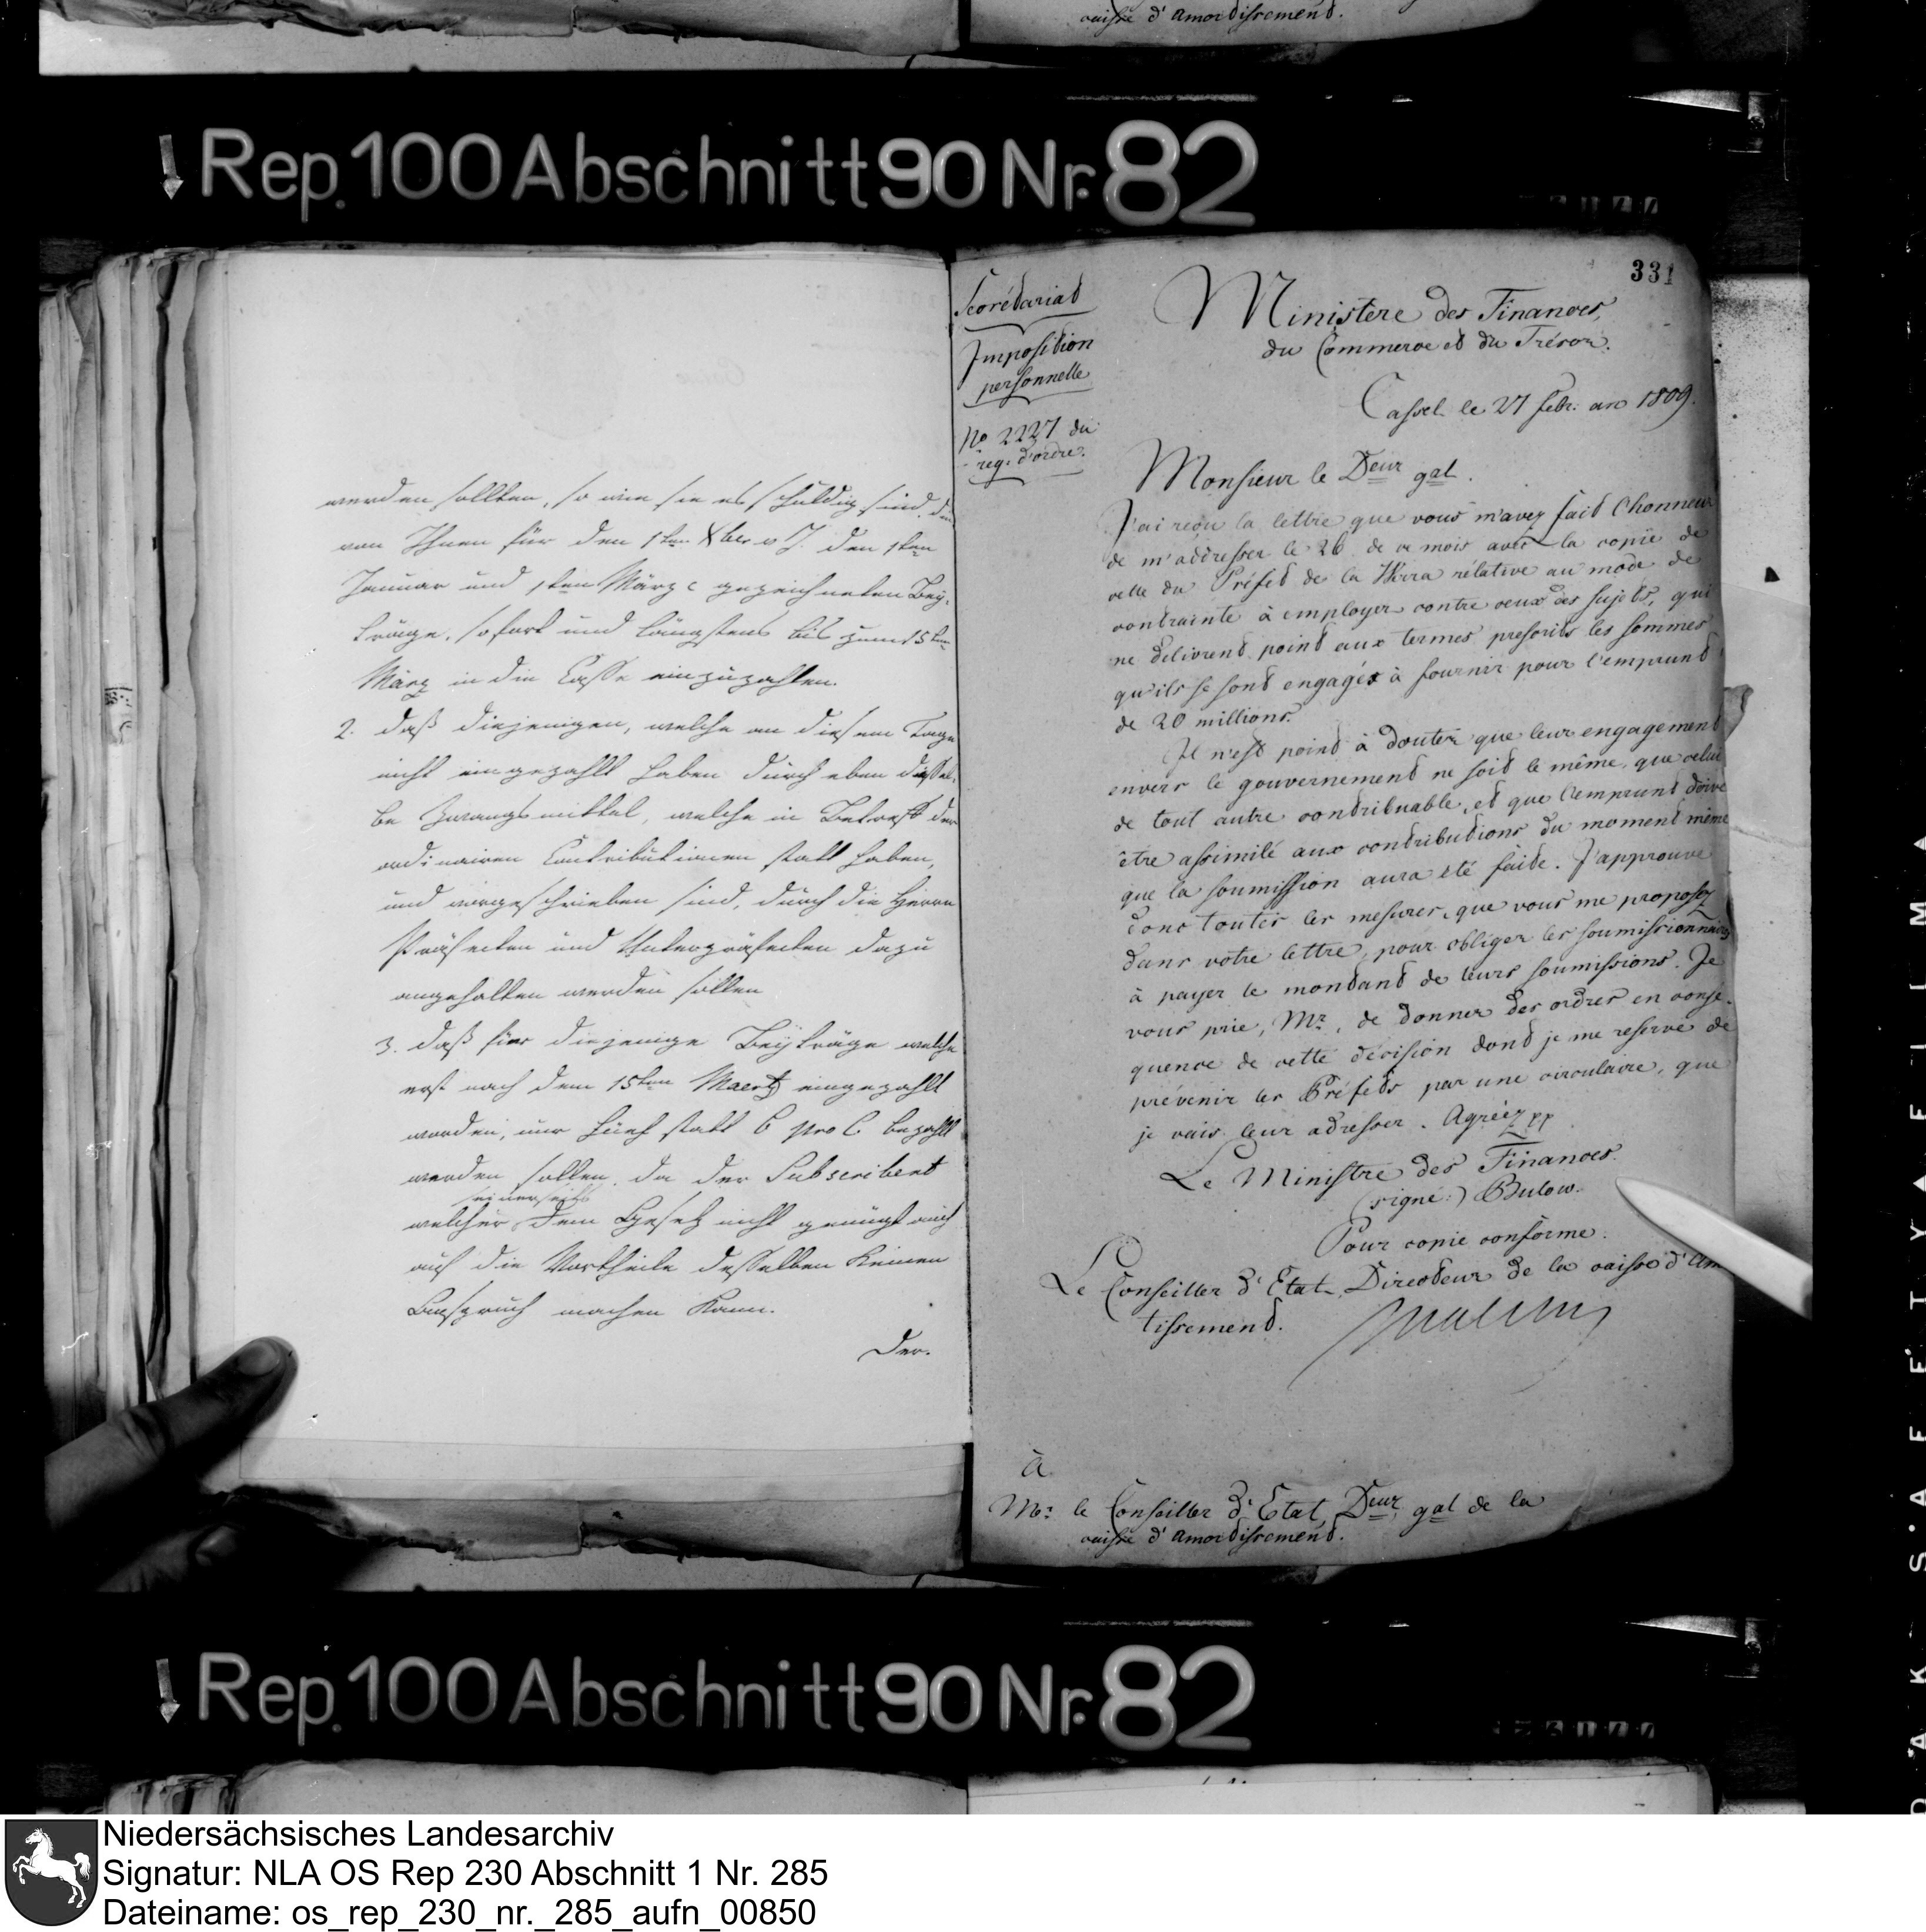 caisse d'Amortissement.
Rep. 100 Abschnitt 90 Nr. 82
werden sollten, so wie sie es schuldig sind, die
von Ihnen für den 1ten Xber v. J. den 1ten
Januar und 1ten März c gezeichneten Bey-
träge, sofort und längstens bis zum 15ten
März in die Casse einzuzahlen.
2. daß diejenigen, welche an diesem Tage
nicht eingezahlt haben durch eben dieselben
be Zwangsmittel, welche in Betreff der
ordinairen Contributionen statt haben,
und vorgeschrieben sind, durch die Herrn
Präfecten und Unterpräfecten dazu
angehalten werden sollen
3. daß für diejenige Beyträge welche
erst nach dem 15ten Maertz eingezahlt
worden, nur fünf statt 6 pro C. bezahlt
werden sollen, da der Subscribent
welcher seinerseits dem Gesetz nicht genügt auch
auf die Vortheile desselben keinen
Anspruch machen kann.
Der.
331
Secrétariat
Imposition
personnelle
No 2227 du
reg. d'ordre.
Ministère des Finances,
du Commerce et du Trésor.
Cassel le 27 febr. an 1809.
Monsieur le Deur gal.
J'ai reçu la lettre que vous m'avez fait l'honneur
de m'addresser le 26 de ce mois avec la copie de
celle du Préfet de la Werra rélative au mode de
contrainte à employer contre ceux des sujets, qui
ne délivrent point aux termes prescrits les sommes
qu'ils se sont engagés à fournir pour l'emprunt
de 20 millions.
Il n'est point à douter que leur engagement
envers le gouvernement ne soit le même, que celui
de tout autre contribuable, et que l'emprunt doive
être assimilé aux contributions du moment même
que la soumission aura été faite. J'approuve
donc toutes les mesures, que vous me proposez
dans votre lettre, pour obliger les soumissionnaires
à payer le montant de leurs soumissions. Je
vous prie, Mr., de donner des ordres en consé-
quence de cette décision dont je me reserve de
prévenir les Préfets par une circulaire, que
je vais leur adresser. Agréez pp
Le Ministre des Finances.
(signé:) Bulow.
Pour copie conforme.
Le Conseiller d'Etat, Directeur de la caisse d'Am
tissement.
à
Mr. le Conseiller d'Etat, Deur gal de la
caisse d'Amortissement.
Rep. 100 Abschnitt 90 Nr. 82
Niedersächsisches Landesarchiv
Signatur: NLA OS Rep 230 Abschnitt 1 Nr. 285
Dateiname: os_rep_230_nr._285_aufn_00850